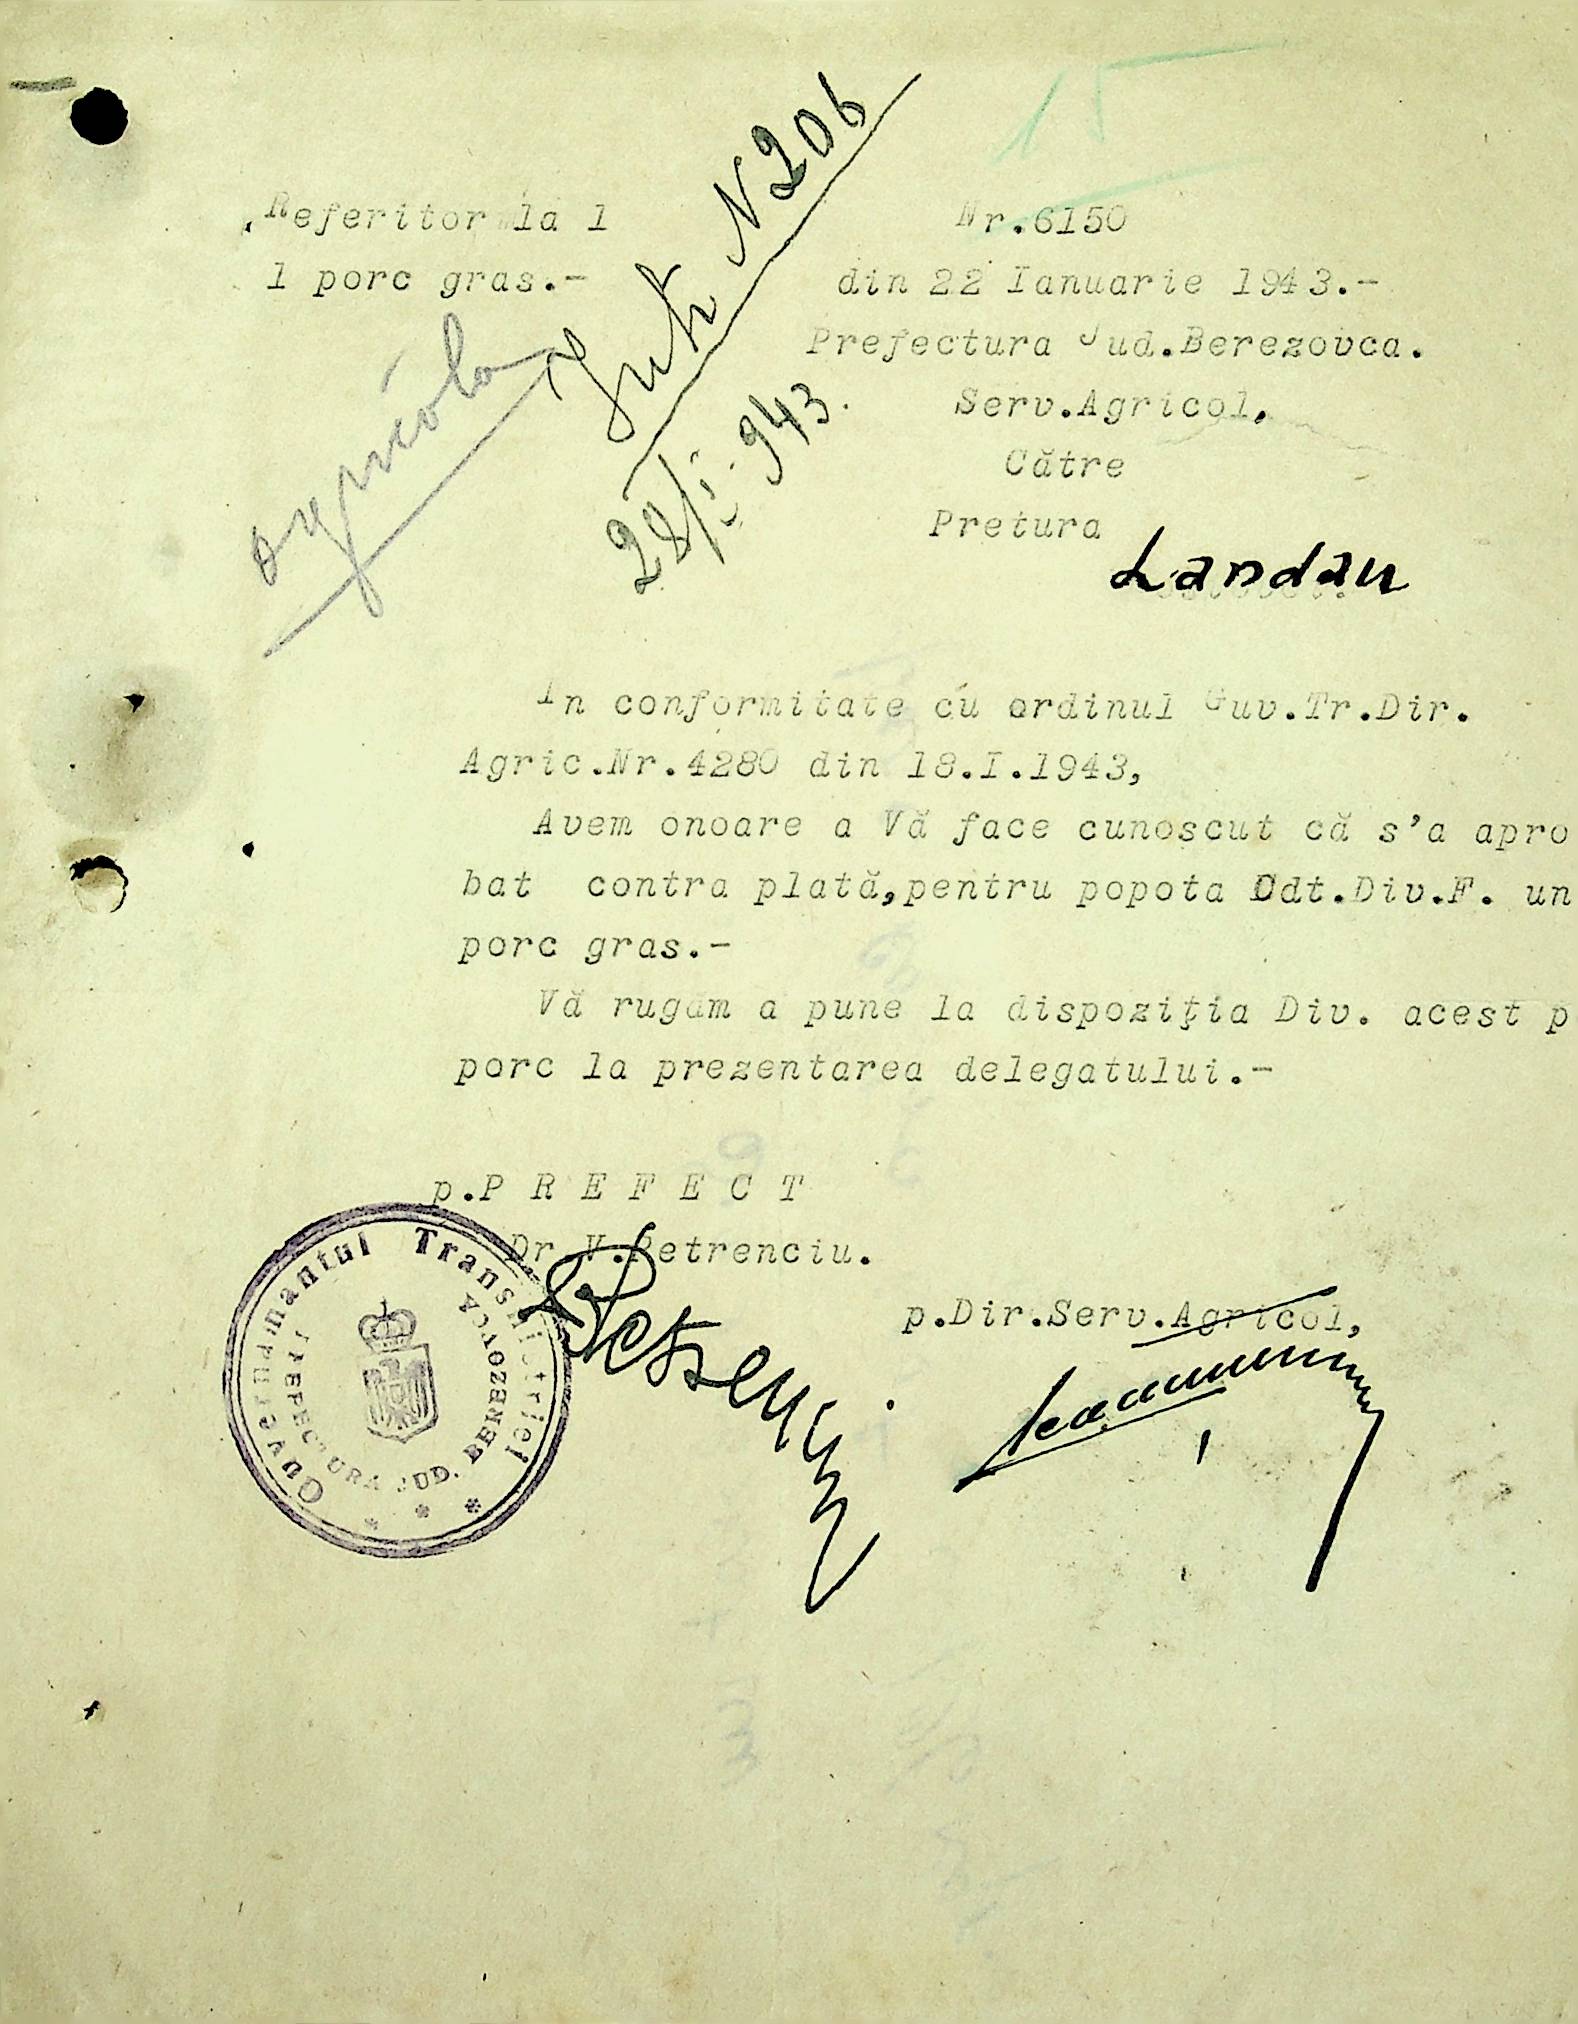 15
Referitor la 1
1 porc gras.-
Nr.6150
din 22 Ianuarie 1943.-
Prefectura Jud.Berezovca.
Serv.Agricol,
Către
Pretura
Landau
N 206
28/I-943.
agricola
In conformitate cu ordinul Guv.Tr.Dir.
Agric.Nr.4280 din 18.I.1943,
Avem onoare a Vă face cunoscut că s'a apro
bat contra plată,pentru popota Cdt.Div.F. un
porc gras.-
Vă rugăm a pune la dispoziţia Div. acest p
porc la prezentarea delegatului.-
p.P R E F E C T
Dr.V.Petrenciu.
p.Dir.Serv.Agricol,
Guvernamantul Transnistriei
PREFECTURA JUD. BEREZOVCA